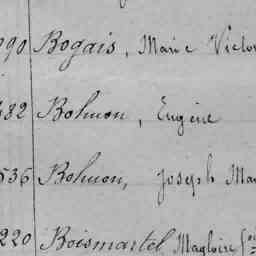 90 Bogais, Marie Victo
382 Bohuon, Eugène
536 Bohuon, Joseph Ma
220 Boismartel, Magloire